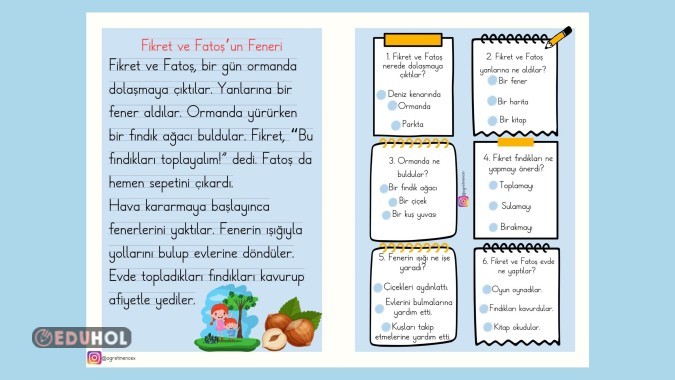 Fikret ve Fatoş'un Feneri
Fikret ve Fatoş, bir gün ormanda
dolaşmaya çıktılar. Yanlarına bir
fener aldılar. Ormanda yürürken
bir fındık ağacı buldular. Fikret, “Bu
fındıkları toplayalım!” dedi. Fatoş da
hemen sepetini çıkardı.
Hava kararmaya başlayınca
fenerlerini yaktılar. Fenerin ışığıyla
yollarını bulup evlerine döndüler.
Evde topladıkları fındıkları kavurup
afiyetle yediler.
EDUHOL
@ogretmencex
1. Fikret ve Fatoş
nerede dolaşmaya
çıktılar?
Deniz kenarında
Ormanda
Parkta
2. Fikret ve Fatoş
yanlarına ne aldılar?
Bir fener
Bir harita
Bir kitap
3. Ormanda ne
buldular?
Bir fındık ağacı
Bir çiçek
Bir kuş yuvası
@ogretmencex
4. Fikret fındıkları ne
yapmayı önerdi?
Toplamayı
Sulamayı
Bırakmayı
5. Fenerin ışığı ne işe
yaradı?
Çiçekleri aydınlattı.
Evlerini bulmalarına
yardım etti.
Kuşları takip
etmelerine yardım etti
6. Fikret ve Fatoş evde
ne yaptılar?
Oyun oynadılar.
Fındıkları kavurdular.
Kitap okudular.